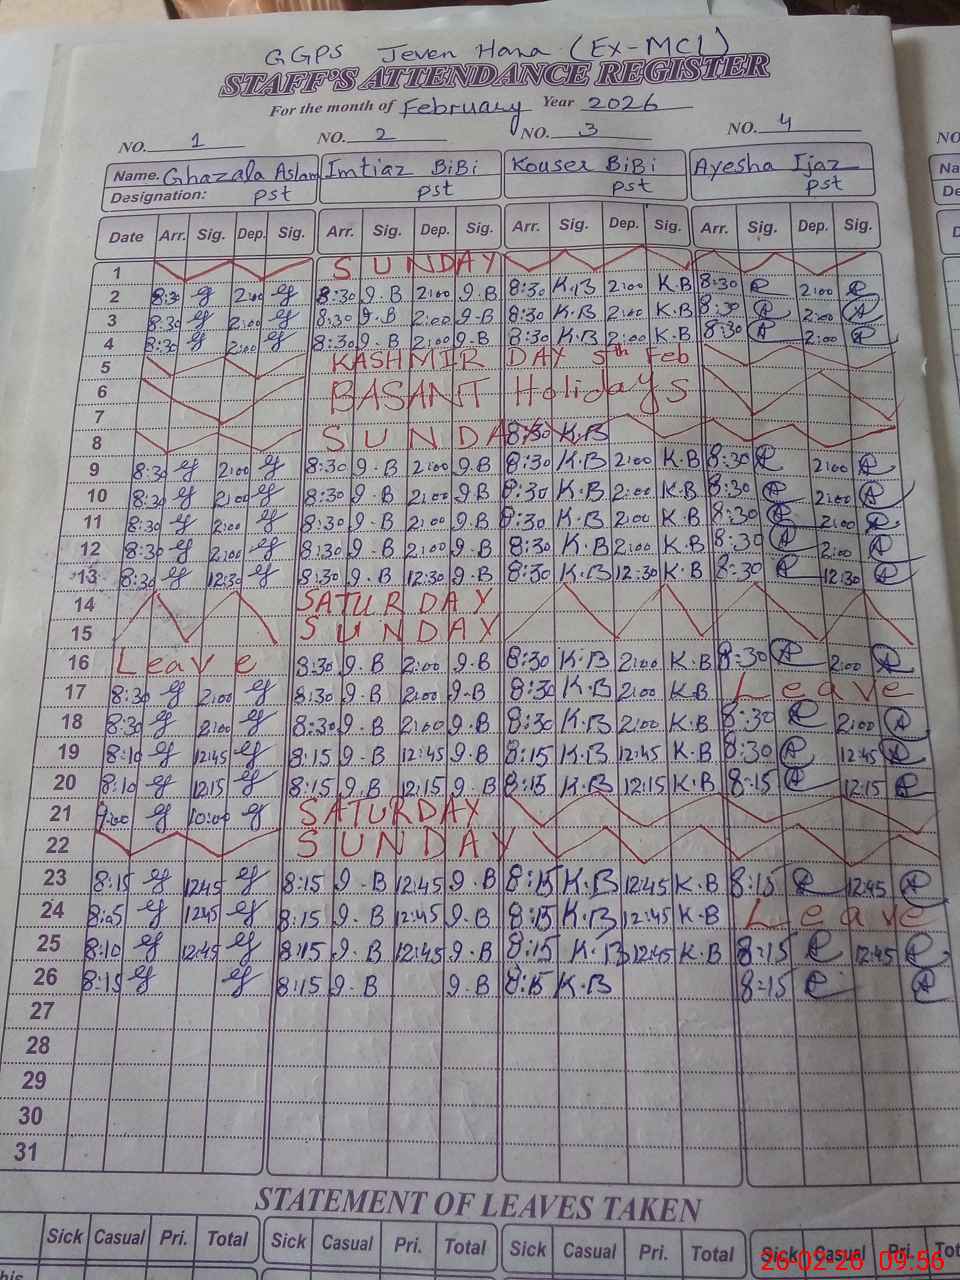 GGPS Jeven Hana (EX-MCL)
STAFF'S ATTENDANCE REGISTER
For the month of February Year 2026
NO. 1 NO. 2 NO. 3 NO. 4
Name. Ghazala Aslam Imtiaz BiBi Kouser BiBi Ayesha Ijaz
Designation: PST PST PST PST
Date Arr. Sig. Dep. Sig. Arr. Sig. Dep. Sig. Arr. Sig. Dep. Sig. Arr. Sig. Dep. Sig.
1 SUNDAY
2 8:30 2:00 8:30 I.B 2:00 I.B 8:30 K.B 2:00 K.B 8:30 2:00
3 8:30 2:00 8:30 I.B 2:00 I.B 8:30 K.B 2:00 K.B 8:30 2:00
4 8:30 2:00 8:30 I.B 2:00 I.B 8:30 K.B 2:00 K.B 8:30 2:00
5 KASHMIR DAY 5th Feb
6 BASANT Holidays
7
8 SUNDAY 8:30 K.B
9 8:30 2:00 8:30 I.B 2:00 I.B 8:30 K.B 2:00 K.B 8:30 2:00
10 8:30 2:00 8:30 I.B 2:00 I.B 8:30 K.B 2:00 K.B 8:30 2:00
11 8:30 2:00 8:30 I.B 2:00 I.B 8:30 K.B 2:00 K.B 8:30 2:00
12 8:30 2:00 8:30 I.B 2:00 I.B 8:30 K.B 2:00 K.B 8:30 2:00
13 8:30 12:30 8:30 I.B 12:30 I.B 8:30 K.B 12:30 K.B 8:30 12:30
14 SATURDAY
15 SUNDAY
16 Leave 8:30 I.B 2:00 I.B 8:30 K.B 2:00 K.B 8:30 2:00
17 8:30 2:00 8:30 I.B 2:00 I.B 8:30 K.B 2:00 K.B Leave
18 8:30 2:00 8:30 I.B 2:00 I.B 8:30 K.B 2:00 K.B 8:30 2:00
19 8:10 12:45 8:15 I.B 12:45 I.B 8:15 K.B 12:45 K.B 8:30 12:45
20 8:10 12:15 8:15 I.B 12:15 I.B 8:15 K.B 12:15 K.B 8:15 12:15
21 9:00 10:00 SATURDAY
22 SUNDAY
23 8:15 12:45 8:15 I.B 12:45 I.B 8:15 K.B 12:45 K.B 8:15 12:45
24 8:05 12:45 8:15 I.B 12:45 I.B 8:15 K.B 12:45 K.B Leave
25 8:10 12:45 8:15 I.B 12:45 I.B 8:15 K.B 12:45 K.B 8:15 12:45
26 8:15 8:15 I.B I.B 8:15 K.B 8:15
27
28
29
30
31
STATEMENT OF LEAVES TAKEN
Sick Casual Pri. Total Sick Casual Pri. Total Sick Casual Pri. Total Sick Casual Pri. Total
26-02-26 09:56